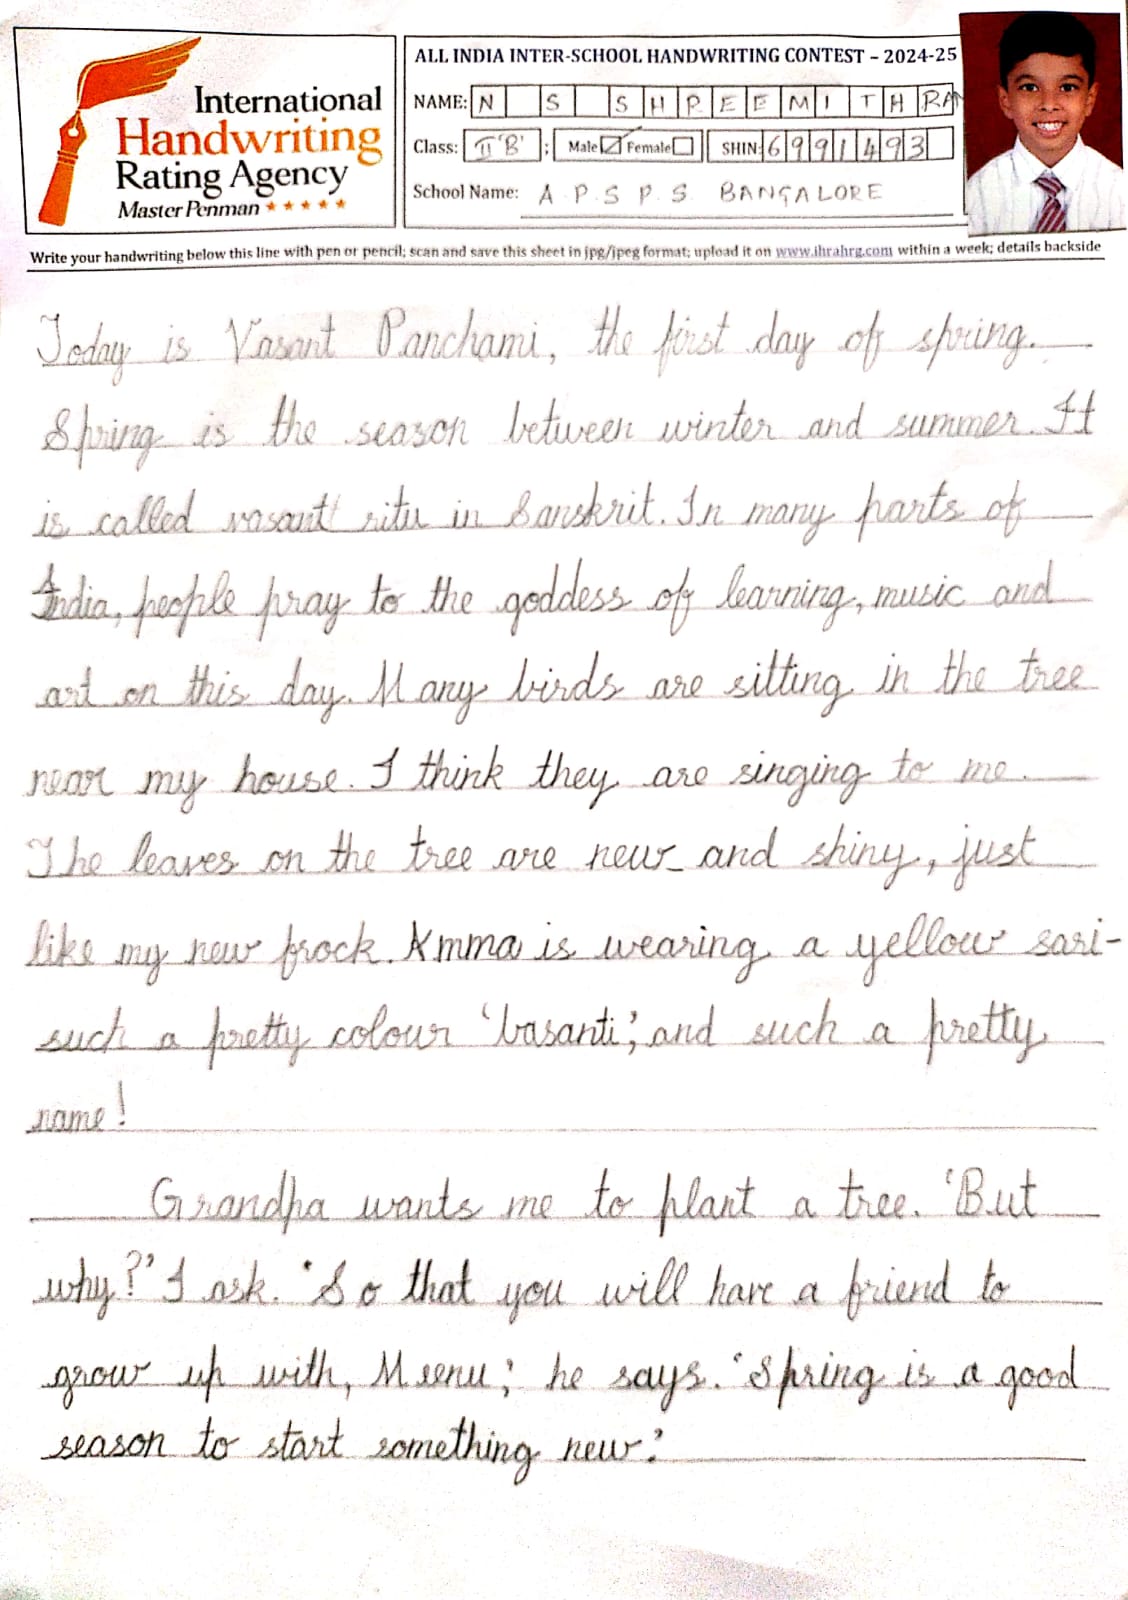 International
Handwriting
Rating Agency
Master Penman
ALL INDIA INTER-SCHOOL HANDWRITING CONTEST – 2024-25
NAME: N S SHREEMITHRA
Class: II 'B' ; Male Female SHIN: 6991493
School Name: A.P.S P.S. BANGALORE
Write your handwriting below this line with pen or pencil; scan and save this sheet in jpg/jpeg format; upload it on www.ihrahrg.com within a week; details backside
Today is Vasant Panchami, the first day of spring.
Spring is the season between winter and summer. It
is called vasant ritu in Sanskrit. In many parts of
India, people pray to the goddess of learning, music and
art on this day. Many birds are sitting in the tree
near my house. I think they are singing to me.
The leaves on the tree are new and shiny, just
like my new frock. Amma is wearing a yellow sari-
such a pretty colour 'basanti', and such a pretty
name!
Grandpa wants me to plant a tree. 'But
why?' I ask. 'So that you will have a friend to
grow up with, Meenu', he says. 'Spring is a good
season to start something new.'